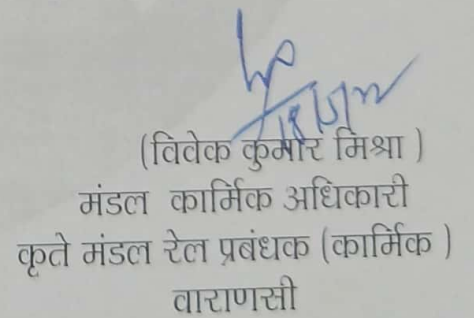 (विवेक कुमार मिश्रा )
मंडल कार्मिक अधिकारी
कृते मंडल रेल प्रबंधक (कार्मिक )
वाराणसी